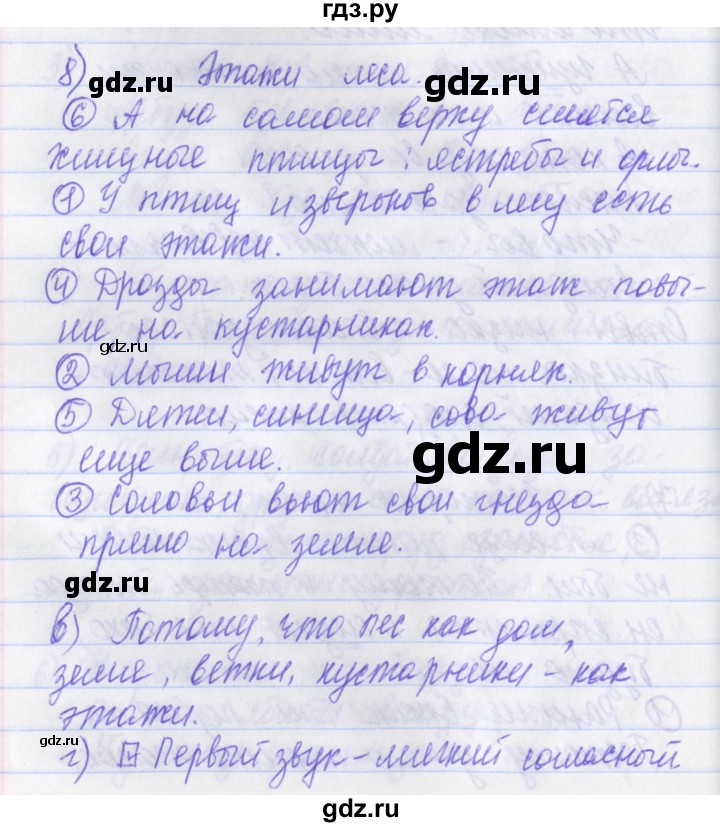 гдз.ру
8) Этажи леса.
gdz.ru
gdz.ru
⑥ А на самом верху селятся
хищные птицы: ястребы и орлы.
① У птиц и зверьков в лесу есть
свои этажи.
④ Дрозды занимают этаж повы-
ше на кустарниках.
gdz.ru
② Мыши живут в корнях.
⑤ Дятел, синица, сова живут
еще выше.
gdz.ru
③ Соловьи вьют свои гнезда
прямо на земле.
gdz.ru
в) Потому, что лес как дом,
земле, ветки, кустарники - как
этажи.
gdz.ru
gdz.ru
г) Первый звук - мягкий согласный
gdz.ru